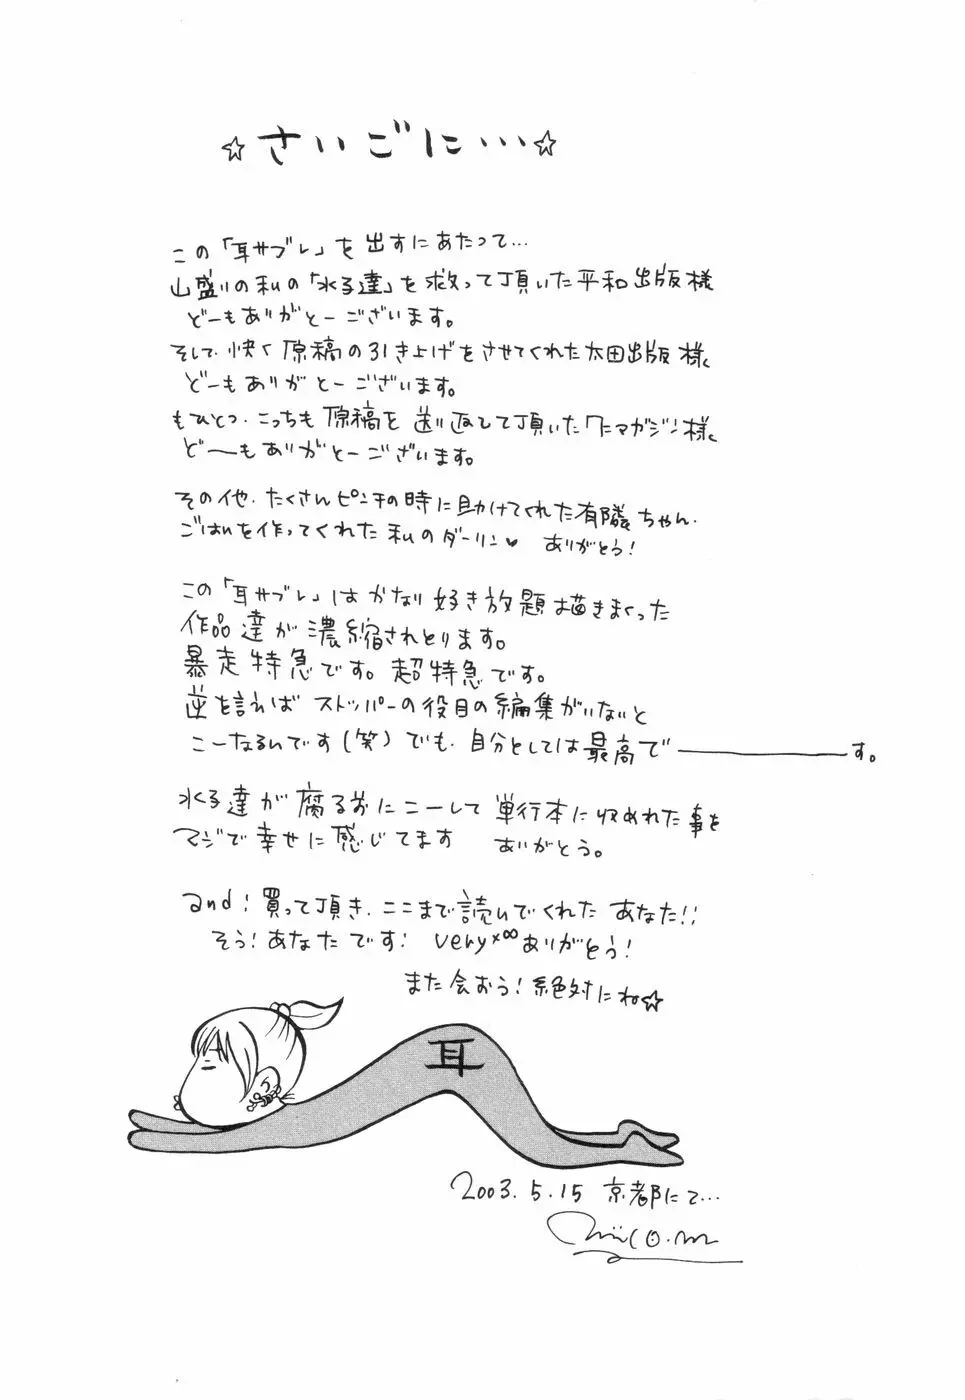 ☆さいごに・・・☆
この「耳サブレ」を出すにあたって…
山盛りの私の「水子達」を救って頂いた平和出版様
どーもありがとーございます。
そして、快く原稿の引き上げをさせてくれた太田出版様、
どーもありがとーございます。
もひとつ、こっちも原稿を送り返して頂いた
マガジン様、
ど——もありがとーございます。
その他、たくさんピンチの時に助けてくれた有隣ちゃん、
ごはんを作ってくれた私のダーリン♥ ありがとう!
この「耳サブレ」はかなり好き放題描きまくった
作品達が濃縮されとります。
暴走特急です。超特急です。
逆を言えばストッパーの役目の編集がいないと
こーなるんです(笑)でも、自分としては最高で————す。
水子達が腐る前にこーして単行本に収めれた事を
マジで幸せに感じてます ありがとう。
and! 買って頂き、ここまで読んでくれた あなた!!
そう!あなたです! very×∞ありがとう!
また会おう!絶対にね☆
耳
2003.5.15 京都にて…